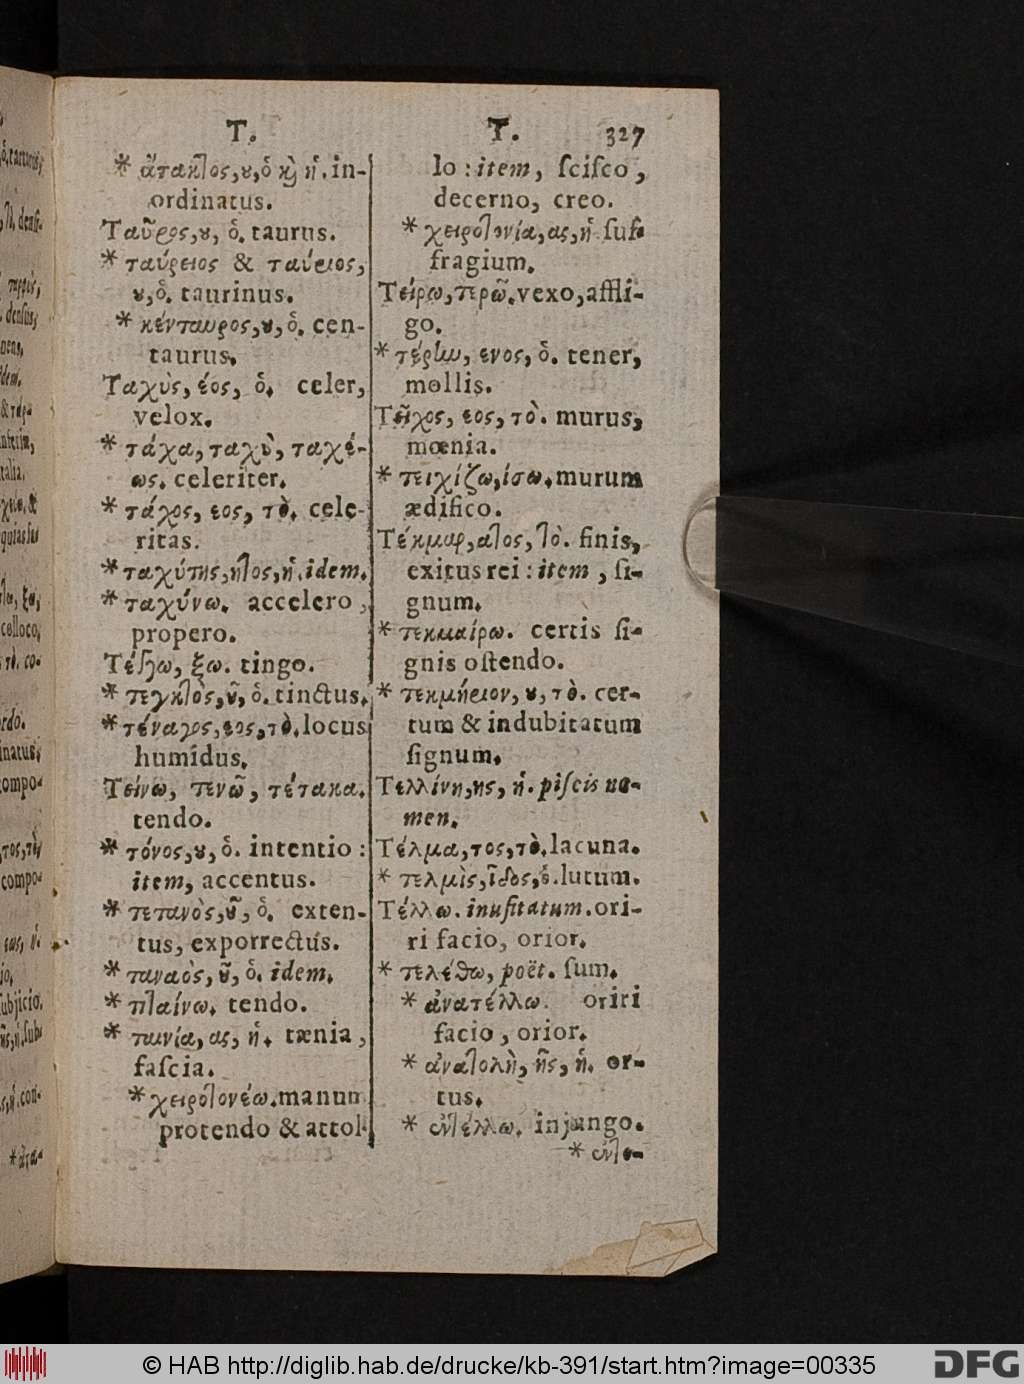 T.
* ἄτακτος, ου, ὁ καὶ ἡ. in-
ordinatus.
Ταῦρος, ου, ὁ. taurus.
* ταύρειος & ταύριος,
ου, ὁ. taurinus.
* κένταυρος, ου, ὁ. cen-
taurus.
Ταχὺς, έος, ὁ. celer,
velox.
* τάχα, ταχὺ, ταχέ-
ως. celeriter.
* τάχος, εος, τὸ. cele-
ritas.
* ταχύτης, ητος, ἡ. idem.
* ταχύνω. accelero,
propero.
Τέγγω, ξω. tingo.
* τεγκτὸς, οῦ, ὁ. tinctus.
* τέναγος, εος, τὸ. locus
humidus.
Τείνω, τενῶ, τέτακα.
tendo.
* τόνος, ου, ὁ. intentio:
item, accentus.
* τετανὸς, οῦ, ὁ. exten-
tus, exporrectus.
* ταναὸς, οῦ, ὁ. idem.
* τιταίνω. tendo.
* ταινία, ας, ἡ. tænia,
faſcia.
* χειροτονέω. manum
protendo & attol-
T. 327
lo: item, ſciſco,
decerno, creo.
* χειροτονία, ας, ἡ. ſuf-
fragium.
Τείρω, τερῶ. vexo, affli-
go.
* τέρην, ενος, ὁ. tener,
mollis.
Τεῖχος, εος, τὸ. murus,
mœnia.
* τειχίζω, ίσω. murum
ædifico.
Τέκμαρ, ατος, τὸ. finis,
exitus rei: item, ſi-
gnum.
* τεκμαίρω. certis ſi-
gnis oſtendo.
* τεκμήριον, ου, τὸ. cer-
tum & indubitatum
ſignum.
Τελλίνη, ης, ἡ. piſcis no-
men.
Τέλμα, τος, τὸ. lacuna.
* τελμὶς, ῖδος, ὁ. lutum.
Τέλλω. inuſitatum. ori-
ri facio, orior.
* τελέθω, poët. ſum.
* ἀνατέλλω. oriri
facio, orior.
* ἀνατολὴ, ῆς, ἡ. or-
tus.
* ἐντέλλω. injungo.
* ἐντε-
© HAB http://diglib.hab.de/drucke/kb-391/start.htm?image=00335
DFG